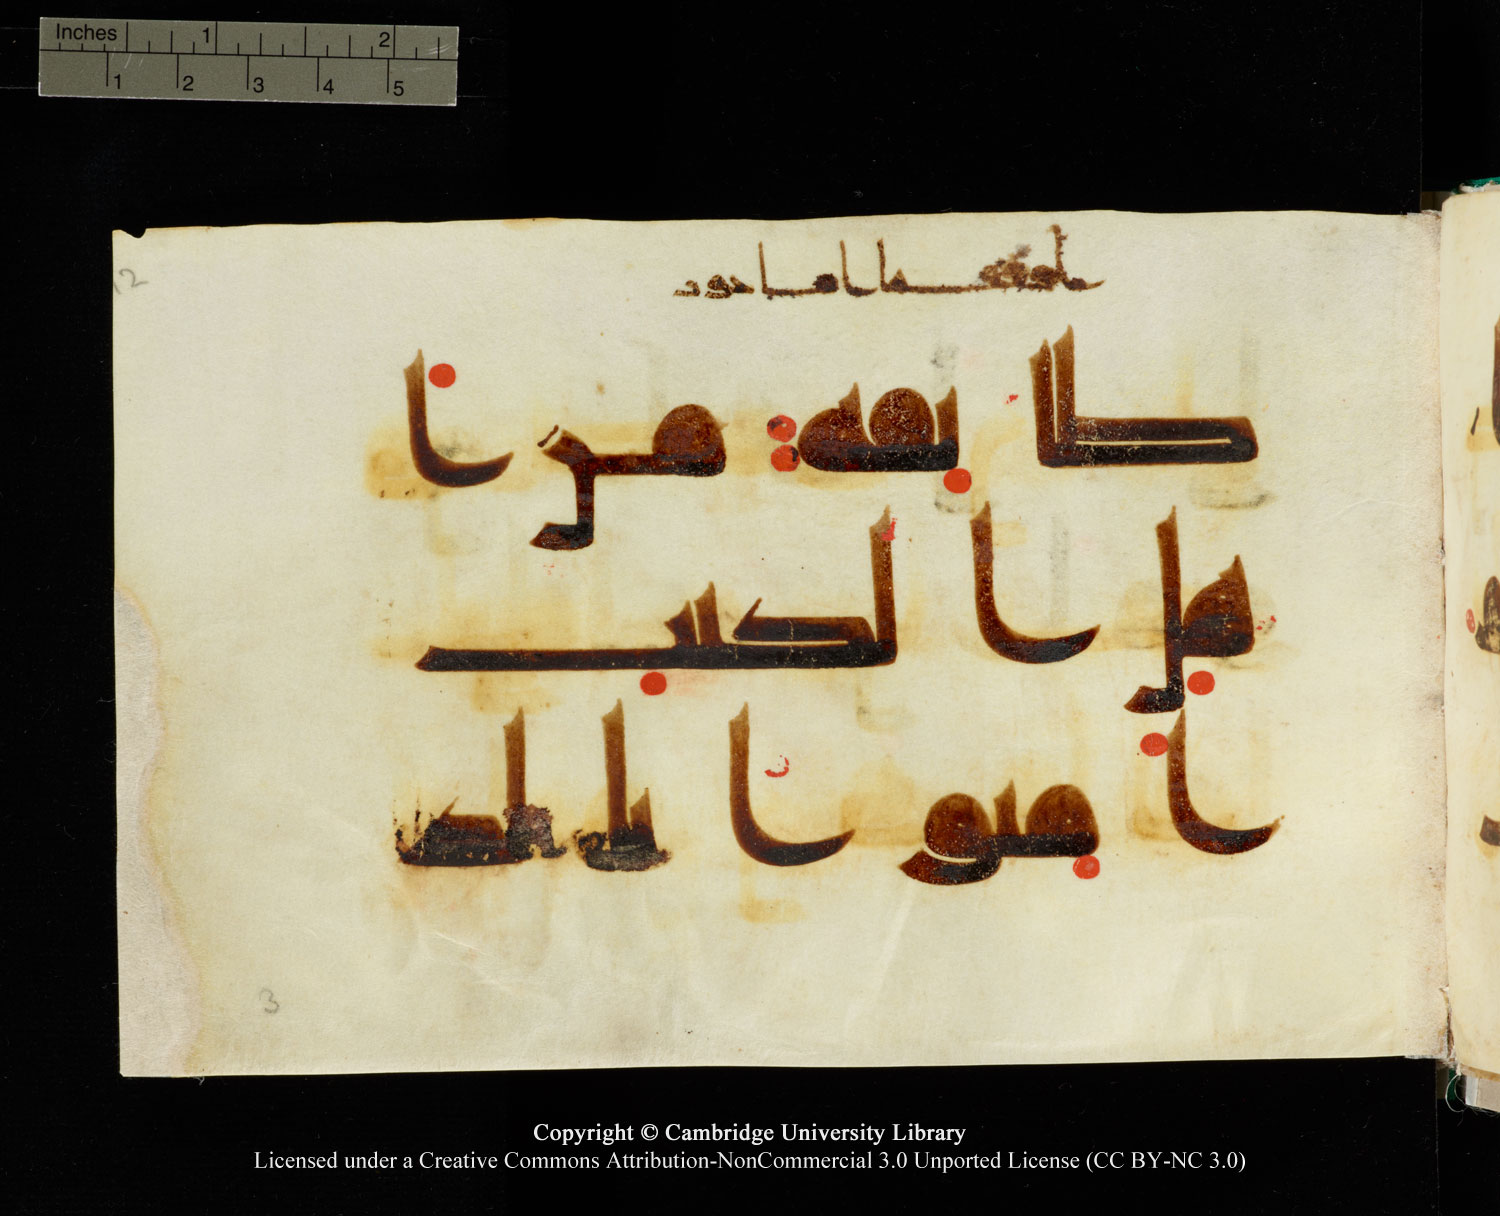 Inches 1 2
1 2 3 4 5
12
اماجور
طائفة من ا
هل الكتب
امنوا بالذ
3
Copyright © Cambridge University Library
Licensed under a Creative Commons Attribution-NonCommercial 3.0 Unported License (CC BY-NC 3.0)